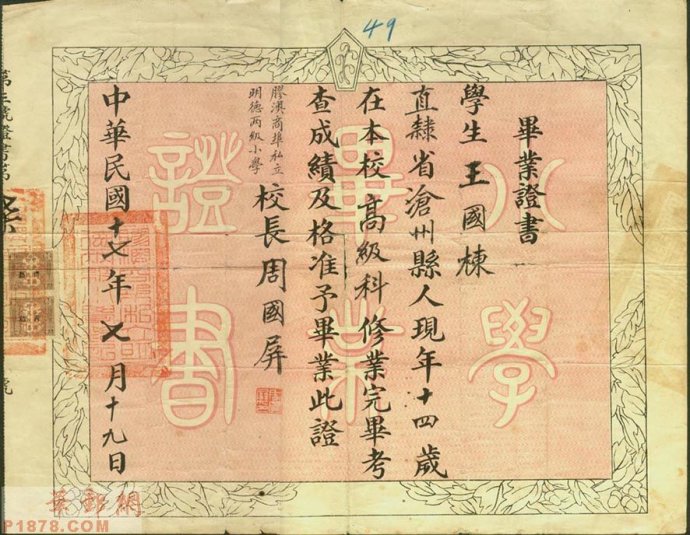 49
畢業證書
學生王國煉
直隸省滄州縣人現年十四歲
在本校高級科修業完畢考
查成績及格准予畢業此證
膠澳商埠私立
明德兩級小學
校長周國屏
中華民國十七年七月十九日
小學
畢業
證書
號
華郵網
P1878.COM